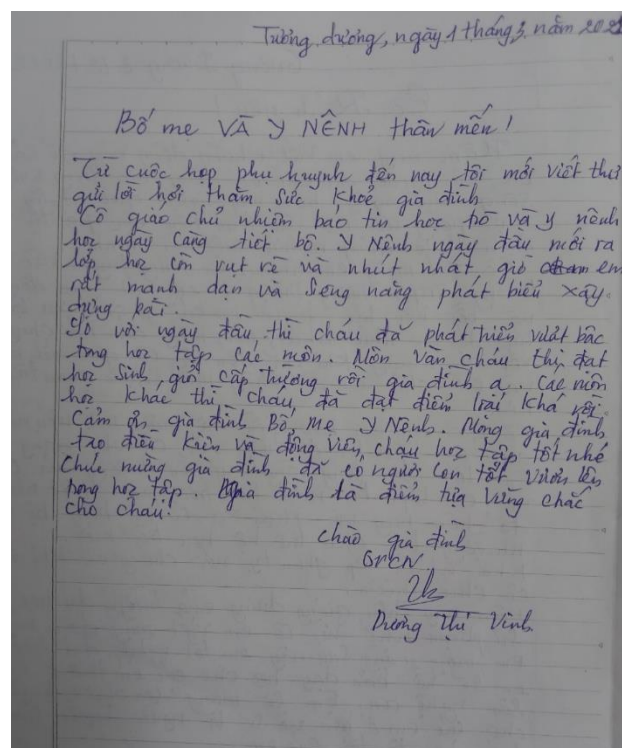 Tương dương, ngày 1 tháng 3 năm 202
Bố mẹ VÀ Y NÊNH thân mến!
Từ cuộc họp phụ huynh đến nay tôi mới viết thư
gửi lời hỏi thăm sức khoẻ gia đình
Cô giáo chủ nhiệm báo tin học trò và y nênh
học ngày càng tiết bộ. Y Nênh ngày đầu mới ra
lớp học còn rụt rè và nhút nhát, giờ em
rất mạnh dạn và seng năng phát biểu xây
dựng bài.
So với ngày đầu thì cháu đã phát triển vượt bậc
trong học tập các môn. Môn Văn cháu thi đạt
học sinh giỏi cấp trường rồi gia đình ạ. Các môn
học khác thì cháu đã đạt điểm khá rồi.
Cảm ơn gia đình Bố, mẹ Y Nênh. Mong gia đình
tạo điều kiện và động viên cháu học tập tốt nhé
Chúc mừng gia đình đã có người con tốt vươn lên
trong học tập. gia đình là điểm tựa vững chắc
cho cháu!
chào gia đình
GVCN
Dương Thị Vinh